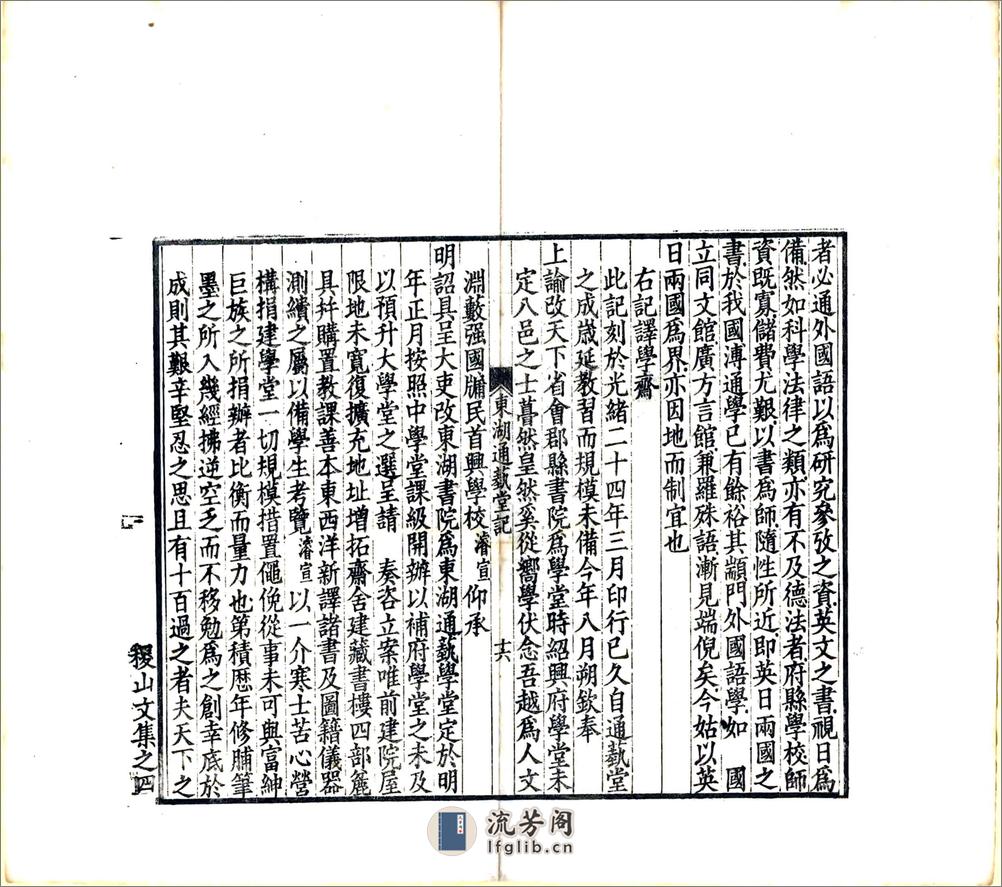 者必通外國語以爲研究參攷之資英文之書視日爲
備然如科學法律之類亦有不及德法者府縣學校師
資既寡儲費尤艱以書爲師隨性所近即英日兩國之
書於我國溥通學已有餘裕其顓門外國語學如　國
立同文館廣方言館兼羅殊語漸見端倪矣今姑以英
日兩國爲界亦因地而制宜也
右記譯學齋
此記刻於光緒二十四年三月印行已久自通藝堂
之成歲延教習而規模未備今年八月朔欽奉
上諭改天下省會郡縣書院爲學堂時紹興府學堂未
定八邑之士驀然皇然奚從嚮學伏念吾越爲人文
東湖通藝堂記
十六
淵藪强國牖民首興學校濬宣仰承
明詔具呈大吏改東湖書院爲東湖通藝學堂定於明
年正月按照中學堂課級開辦以補府學堂之未及
以預升大學堂之選呈請　奏咨立案唯前建院屋
限地未寬復擴充地址增拓齋舍建藏書樓四部簏
具幷購置教課善本東西洋新譯諸書及圖籍儀器
測繢之屬以備學生考覽濬宣以一介寒士苦心營
構捐建學堂一切規模措置僶俛從事未可與富紳
巨族之所捐辦者比衡而量力也第積歷年修脯筆
墨之所入幾經拂逆空乏而不移勉爲之創幸底於
成則其艱辛堅忍之思且有十百過之者夫天下之
稷山文集之四
流芳阁
lfglib.cn